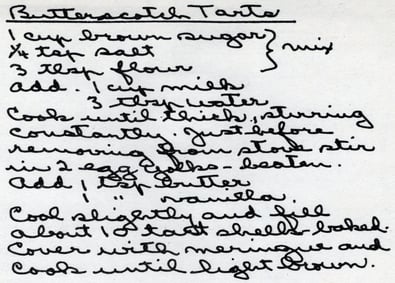 Butterscotch Tarts
1 cup brown sugar } mix
1/4 tsp salt
3 tbsp flour
add. 1 cup milk
3 tbsp water
Cook until thick, stirring
constantly. Just before
removing from stove stir
in 2 egg yolks - beaten.
Add 1 tsp butter
1 " vanilla.
Cool slightly and fill
about 10 tart shells - baked.
Cover with meringue and
cook until light brown.